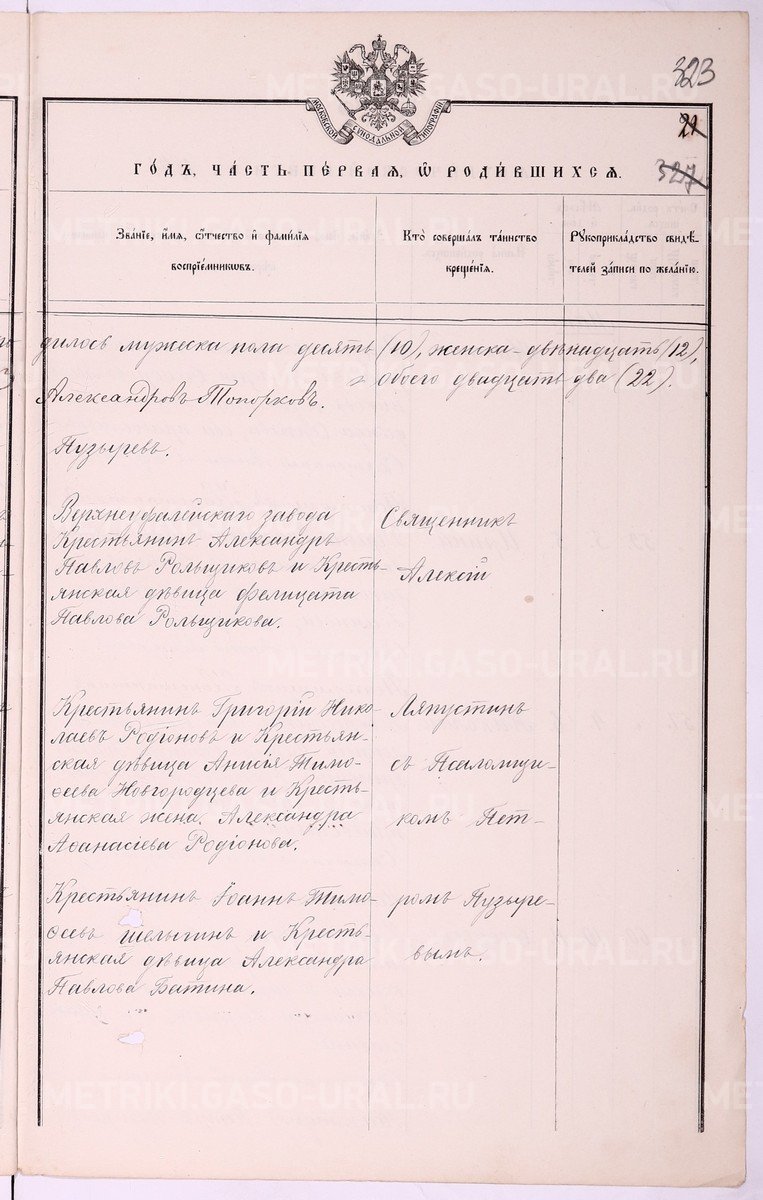 323
21
327
МОСКОВСКОЙ СѴНОДАЛЬНОЙ ТИПОГРАФІИ
ГО́ДЪ, ЧА́СТЬ ПЕ́РВАЯ, Ѽ РОДИ́ВШИХСЯ.
Зва́нїе, и҆́мѧ, ѻ҆́тчество и҆ фами́лїѧ
воспрїе́мникѡвъ.
Кто̀ соверша́лъ та́инство
креще́нїѧ.
Рꙋкоприкла́дство свидѣ́-
телей за́писи по жела́нїю.
дилось мужеска пола десять (10), женска - двѣнадцать (12),
обоего двадцать два (22).
Александровъ Топорковъ.
Пузыревъ.
Верхнеуфалейскаго завода
Крестьянинъ Александръ
Павловъ Рольщиковъ и Кресть-
янская дѣвица Фелицата
Павлова Рольщикова.
Священникъ
Алексій
Крестьянинъ Григорій Нико-
лаевъ Родіоновъ и Крестьян-
ская дѣвица Анисія Тимо-
ѳеева Новгородцева и Кресть-
янская жена Александра
Аѳанасіева Родіонова.
Ляпустинъ
съ Псаломщи-
комъ Пет-
Крестьянинъ Іоаннъ Тимо-
ѳеевъ Шелыгинъ и Кресть-
янская дѣвица Александра
Павлова Батина.
ромъ Пузыре-
вымъ.
METRIKI.GASO-URAL.RU
METRIKI.GASO-URAL.RU
METRIKI.GASO-URAL.RU